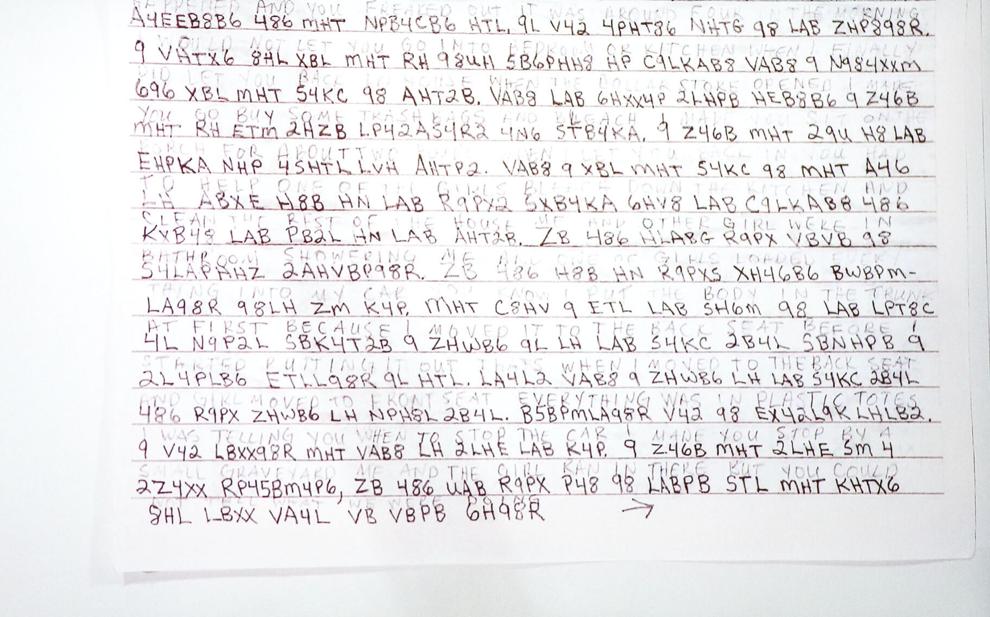 HAPPENED AND YOU FREAKED OUT IT WAS AROUND FOUR IN THE MORNING
A4EEB8B6 486 mHT NPB4CB6 HTL, 9L V42 4PHT86 NHTG 98 LAB ZHP898R.
I WOULD NOT LET YOU GO INTO BEDROOM OR KITCHEN WHEN I FINALLY
9 VHTX6 8HL XBL mHT RH 98UH 5B6PHH8 HP C9LKAB8 VAB8 9 N984XXm
DID LET YOU BACK IN HOUSE WHEN THE DOLLAR STORE OPENED I MADE
696 XBL mHT 54KC 98 AHT2B. VAB8 LAB 6HXX4P 2LHPB HEB8B6 9 Z46B
YOU GO BUY SOME TRASH BAGS AND BLEACH I MADE YOU SIT ON THE
mHT RH ETm 2HZB LP42A54R2 4N6 5TB4KA, 9 Z46B mHT 29U H8 LAB
PORCH FOR ABOUT TWO HOURS WHEN I LET YOU BACK IN YOU HAD
EHPKA NHP 45HTL LVH AHTP2. VAB8 9 XBL mHT 54KC 98 mHT A46
TO HELP ONE OF THE GIRLS BLEACH DOWN THE KITCHEN AND
LH ABXE H8B HN LAB R9PX2 5XB4KA 6HV8 LAB C9LKAB8 486
CLEAN THE REST OF THE HOUSE ME AND OTHER GIRL WERE IN
KXB48 LAB PB2L HN LAB AHT2B. ZB 486 HLABG R9PX VBVB 98
BATHROOM SHOWERING ME AND ONE OF GIRLS LOADED EVERY
54LAPHHZ 2AHVBP98R. ZB 486 H8B HN R9PXS XH46B6 BWBPm-
THING INTO MY CAR YOU KNOW I PUT THE BODY IN THE TRUNK
LA98R 98LH Zm K4P. mHT C8HV 9 ETL LAB 5H6m 98 LAB LPT8C
AT FIRST BECAUSE I MOVED IT TO THE BACK SEAT BEFORE I
4L N9P2L 5BK4T2B 9 ZHWB6 9L LH LAB 54KC 2B4L 5BNHPB 9
STARTED PUTTING IT OUT THATS WHEN I MOVED TO THE BACK SEAT
2L4PLB6 ETLL98R 9L HTL. LA4L2 VAB8 9 ZHWB6 LH LAB 54KC 2B4L
AND GIRL MOVED TO FRONT SEAT EVERYTHING WAS IN PLASTIC TOTES
486 R9PX ZHWB6 LH NPH8L 2B4L. B5BPmLA98R V42 98 EX42L9K LHLB2.
I WAS TELLING YOU WHEN TO STOP THE CAR I MADE YOU STOP BY A
9 V42 LBXX98R mHT VAB8 LH 2LHE LAB K4P. 9 Z46B mHT 2LHE 5m 4
SMALL GRAVEYARD ME AND THE GIRL RAN IN THERE BUT YOU COULD
2Z4XX RP45Bm4P6, ZB 486 UAB R9PX P48 98 LABPB 5TL mHT KHTX6
NOT TELL WHAT WE WERE DOING
8HL LBXX VA4L VB VBPB 6H98R →